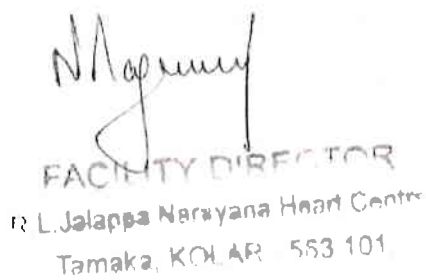 FACILITY DIRECTOR
R L.Jalappa Narayana Heart Centre
Tamaka, KOLAR 553 101